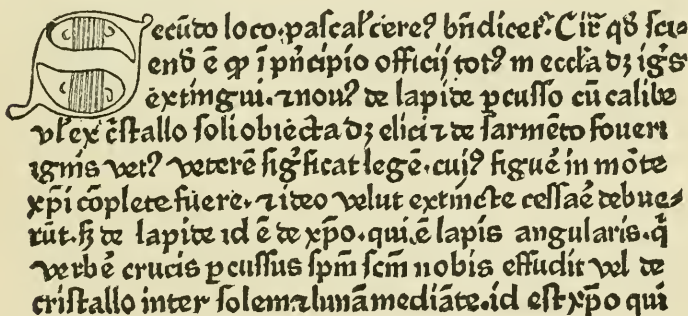 Secūdo loco. paſcal' cereꝰ bn̄dicet᷑. Cir̄ qḋ ſciē⸗
enḋ ē ꝙ ī pn̄cipio officij totꝰ in eccl̄a dꝫ igīs
extingui. ⁊ nouꝰ de lapide ꝑcuſſo cū calibe
vl' ex c̄ſtallo ſoli obiecta dꝫ elici ⁊ de ſarmēto foueri
ignis vetꝰ veterē ſig̾ficat legē. cuiꝰ figu᷑e in mōte
xp̄i cōplete fuere. ⁊ ideo velut extincte ceſſa᷑e debue⸗
rūt. ſꝫ de lapide id ē de xp̄o. qui ē lapis angularis. q̄
verbe᷑ crucis ꝑcuſſus ſpm̄ ſcm̄ nobis effudit vel de
criſtallo inter ſolem ⁊ lunā mediāte. id eſt xp̄o qui